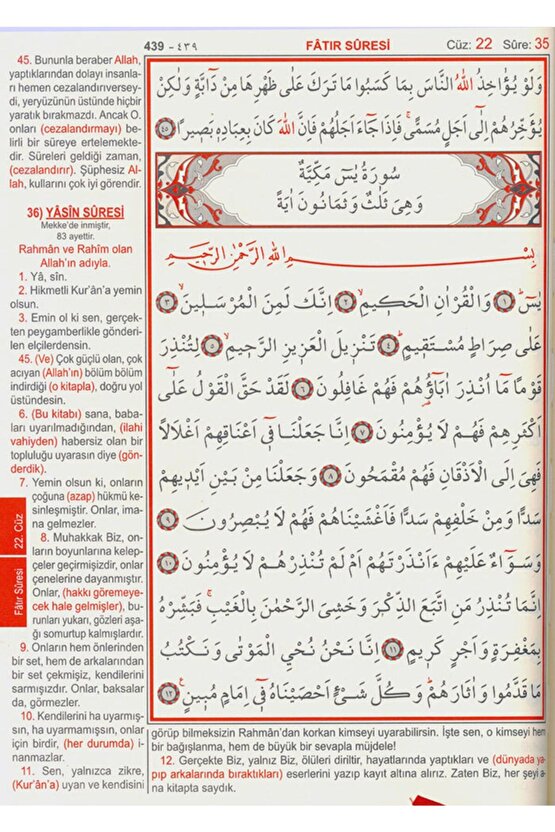 439 - ٤٣٩
FÂTIR SÛRESİ
Cüz: 22 Sûre: 35
45. Bununla beraber Allah,
yaptıklarından dolayı insanla-
rı hemen cezalandırıversey-
di, yeryüzünün üstünde hiçbir
yaratık bırakmazdı. Ancak O.
onları (cezalandırmayı) be-
lirli bir süreye ertelemekte-
dir. Süreleri geldiği zaman,
(cezalandırır). Şüphesiz Al-
lah, kullarını çok iyi görendir.
36) YÂSİN SÛRESİ
Mekke'de inmiştir,
83 ayettir.
Rahmân ve Rahîm olan
Allah'ın adıyla.
1. Yâ, sîn.
2. Hikmetli Kur'ân'a yemin
olsun.
3. Emin ol ki sen, gerçek-
ten peygamberlikle gönderi-
len elçilerdensin.
45. (Ve) Çok güçlü olan, çok
acıyan (Allah'ın) bölüm bölüm
indirdiği (o kitapla), doğru yol
üstündesin.
6. (Bu kitabı) sana, baba-
ları uyarılmadığından, (ilahi
vahiyden) habersiz olan bir
topluluğu uyarasın diye (gön-
derdik).
7. Yemin olsun ki, onların
çoğuna (azap) hükmü ke-
sinleşmiştir. Onlar, ima-
na gelmezler.
8. Muhakkak Biz, on-
ların boyunlarına kelep-
çeler geçirmişizdir, onlar
çenelerine dayanmıştır.
Onlar, (hakkı göremeye-
cek hale gelmişler), bu-
runları yukarı, gözleri aşa-
ğı somurtup kalmışlardır.
9. Onların hem önlerinden
bir set, hem de arkalarından
bir set çekmişiz, kendilerini
sarmışızdır. Onlar, baksalar
da, görmezler.
10. Kendilerini ha uyarmış-
sın, ha uyarmamışsın, onlar
için birdir, (her durumda) i-
nanmazlar.
11. Sen, yalnızca zikre,
(Kur'ân'a) uyan ve kendisini
22. Cüz
Fâtır Sûresi
وَلَوْ يُؤَاخِذُ اللّٰهُ النَّاسَ بِمَا كَسَبُوا مَا تَرَكَ عَلٰى ظَهْرِهَا مِنْ دَآبَّةٍ وَلٰكِنْ
يُؤَخِّرُهُمْ اِلٰٓى اَجَلٍ مُسَمًّىۚ فَاِذَا جَآءَ اَجَلُهُمْ فَاِنَّ اللّٰهَ كَانَ بِعِبَادِهٖ بَصِيرًا ٤٥
سُورَةُ يٰسٓ مَكِّيَّةٌ
وَهِيَ ثَلٰثٌ وَثَمَانُونَ اٰيَةً
بِسْمِ اللّٰهِ الرَّحْمٰنِ الرَّحِيمِ
يٰسٓۚ ١ وَالْقُرْاٰنِ الْحَكِيمِۙ ٢ اِنَّكَ لَمِنَ الْمُرْسَلِينَۙ ٣
عَلٰى صِرَاطٍ مُسْتَقِيمٍۜ ٤ تَنْزِيلَ الْعَزِيزِ الرَّحِيمِۙ ٥ لِتُنْذِرَ
قَوْمًا مَٓا اُنْذِرَ اٰبَٓاؤُ۬هُمْ فَهُمْ غَافِلُونَ ٦ لَقَدْ حَقَّ الْقَوْلُ عَلٰٓى
اَكْثَرِهِمْ فَهُمْ لَا يُؤْمِنُونَ ٧ اِنَّا جَعَلْنَا فٖٓي اَعْنَاقِهِمْ اَغْلَالًا
فَهِيَ اِلَى الْاَذْقَانِ فَهُمْ مُقْمَحُونَ ٨ وَجَعَلْنَا مِنْ بَيْنِ اَيْدِيهِمْ
سَدًّا وَمِنْ خَلْفِهِمْ سَدًّا فَاَغْشَيْنَاهُمْ فَهُمْ لَا يُبْصِرُونَ ٩
وَسَوَٓاءٌ عَلَيْهِمْ ءَاَنْذَرْتَهُمْ اَمْ لَمْ تُنْذِرْهُمْ لَا يُؤْمِنُونَ ١٠
اِنَّمَا تُنْذِرُ مَنِ اتَّبَعَ الذِّكْرَ وَخَشِيَ الرَّحْمٰنَ بِالْغَيْبِۚ فَبَشِّرْهُ
بِمَغْفِرَةٍ وَاَجْرٍ كَرِيمٍ ١١ اِنَّا نَحْنُ نُحْيِ الْمَوْتٰى وَنَكْتُبُ
مَا قَدَّمُوا وَاٰثَارَهُمْۜ وَكُلَّ شَيْءٍ اَحْصَيْنَاهُ فٖٓي اِمَامٍ مُبِينٍ ١٢
görüp bilmeksizin Rahmân'dan korkan kimseyi uyarabilirsin. İşte sen, o kimseyi hem
bir bağışlanma, hem de büyük bir sevapla müjdele!
12. Gerçekte Biz, yalnız Biz, ölüleri diriltir, hayatlarında yaptıkları ve (dünyada ya-
pıp arkalarında bıraktıkları) eserlerini yazıp kayıt altına alırız. Zaten Biz, her şeyi a-
na kitapta saydık.